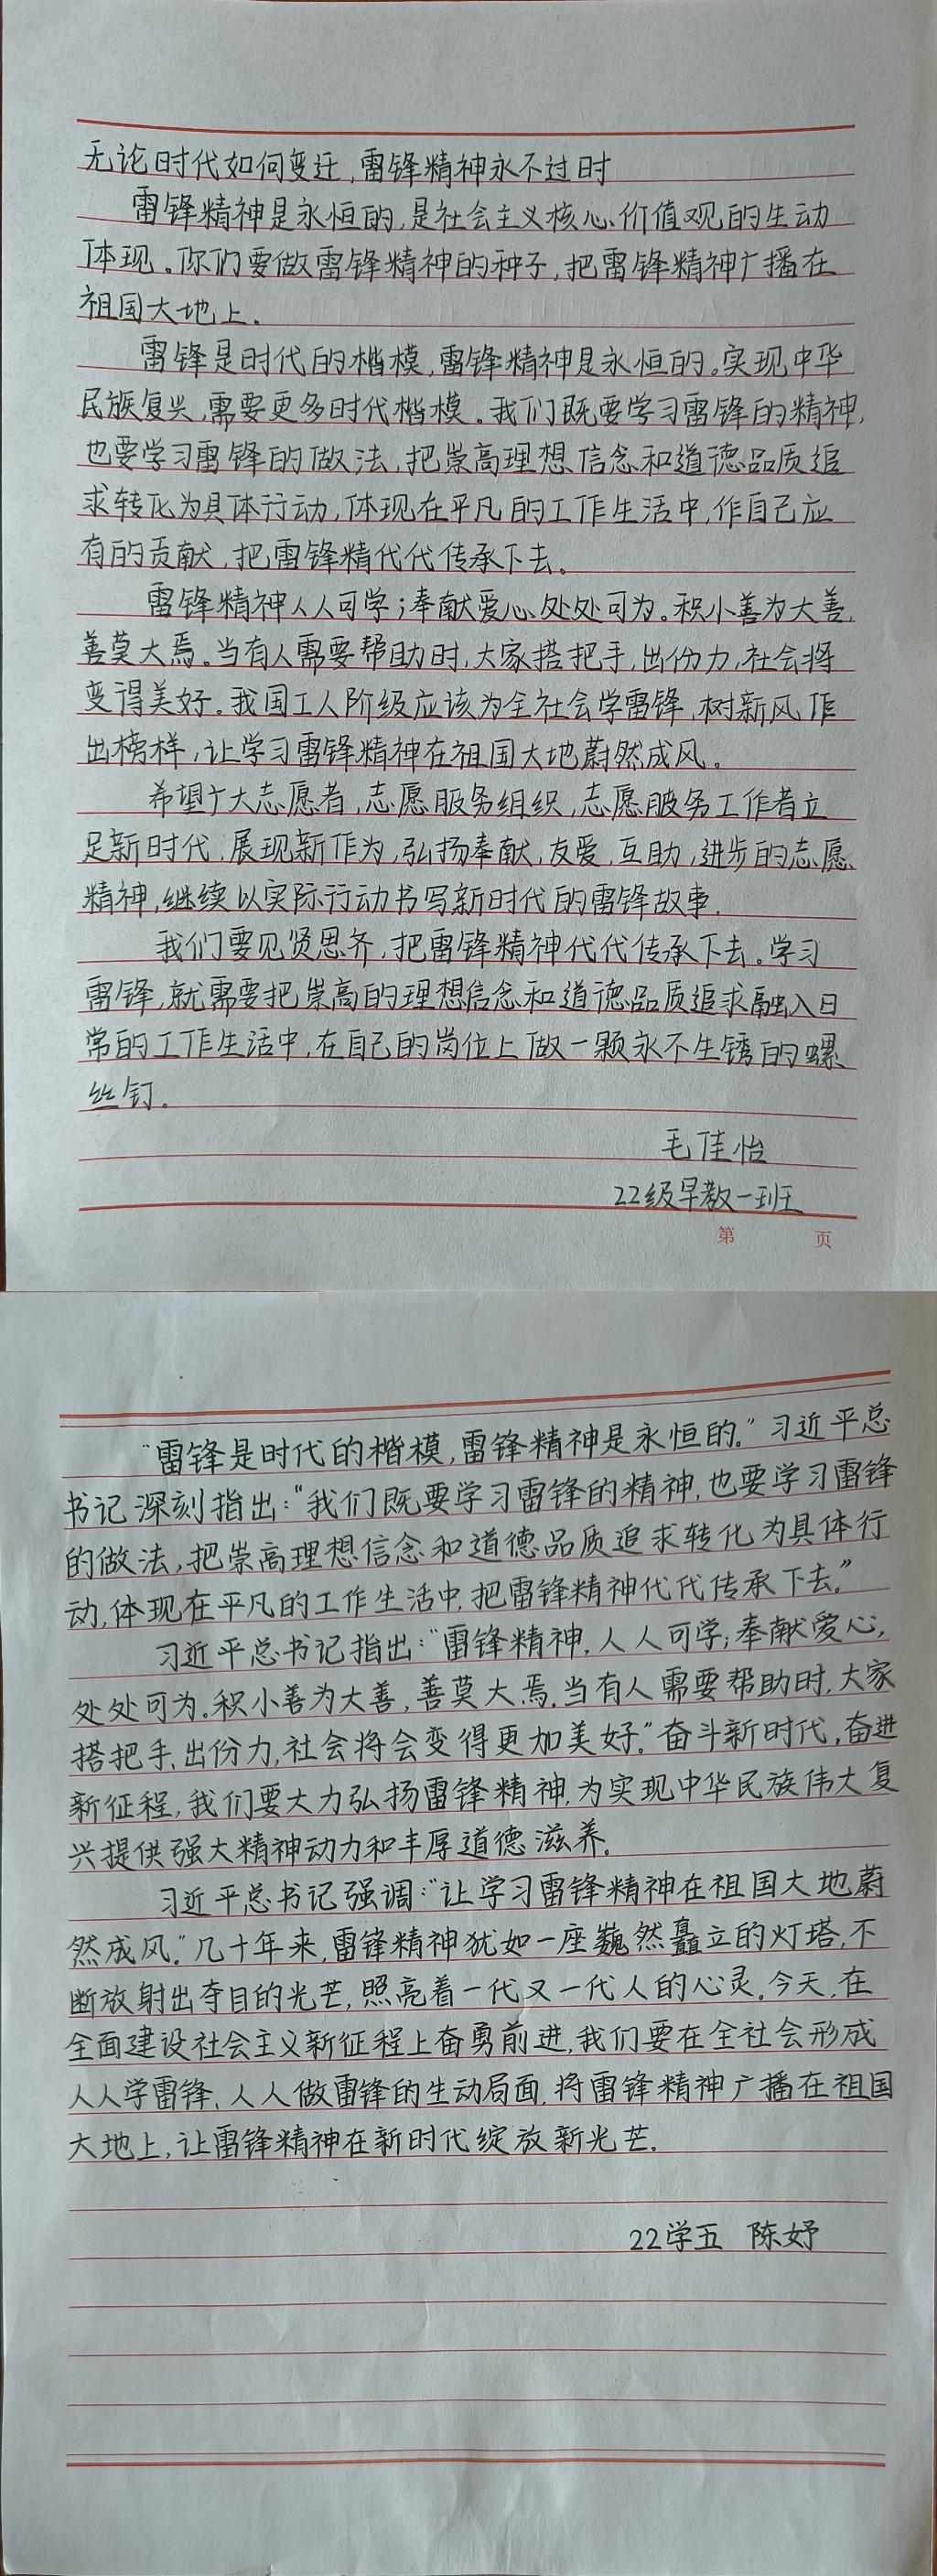 无论时代如何变迁,雷锋精神永不过时
雷锋精神是永恒的,是社会主义核心价值观的生动
体现。你们要做雷锋精神的种子,把雷锋精神广播在
祖国大地上。
雷锋是时代的楷模,雷锋精神是永恒的。实现中华
民族复兴,需要更多时代楷模。我们既要学习雷锋的精神,
也要学习雷锋的做法,把崇高理想信念和道德品质追
求转化为具体行动,体现在平凡的工作生活中,作自己应
有的贡献,把雷锋精代代传承下去。
雷锋精神人人可学;奉献爱心处处可为。积小善为大善,
善莫大焉。当有人需要帮助时,大家搭把手,出份力,社会将
变得美好。我国工人阶级应该为全社会学雷锋,树新风作
出榜样,让学习雷锋精神在祖国大地蔚然成风。
希望广大志愿者,志愿服务组织,志愿服务工作者立
足新时代,展现新作为,弘扬奉献,友爱,互助,进步的志愿
精神,继续以实际行动书写新时代的雷锋故事.
我们要见贤思齐,把雷锋精神代代传承下去。学习
雷锋,就需要把崇高的理想信念和道德品质追求融入日
常的工作生活中,在自己的岗位上做一颗永不生锈的螺
丝钉。
毛佳怡
22级早教一班
第 页
“雷锋是时代的楷模,雷锋精神是永恒的.”习近平总
书记深刻指出:“我们既要学习雷锋的精神,也要学习雷锋
的做法,把崇高理想信念和道德品质追求转化为具体行
动,体现在平凡的工作生活中,把雷锋精神代代传承下去.”
习近平总书记指出:“雷锋精神,人人可学;奉献爱心,
处处可为.积小善为大善,善莫大焉.当有人需要帮助时,大家
搭把手、出份力,社会将会变得更加美好.”奋斗新时代,奋进
新征程,我们要大力弘扬雷锋精神,为实现中华民族伟大复
兴提供强大精神动力和丰厚道德滋养.
习近平总书记强调:“让学习雷锋精神在祖国大地蔚
然成风.”几十年来,雷锋精神犹如一座巍然矗立的灯塔,不
断放射出夺目的光芒,照亮着一代又一代人的心灵.今天,在
全面建设社会主义新征程上奋勇前进,我们要在全社会形成
人人学雷锋、人人做雷锋的生动局面,将雷锋精神广播在祖国
大地上,让雷锋精神在新时代绽放新光芒.
22学五 陈妤